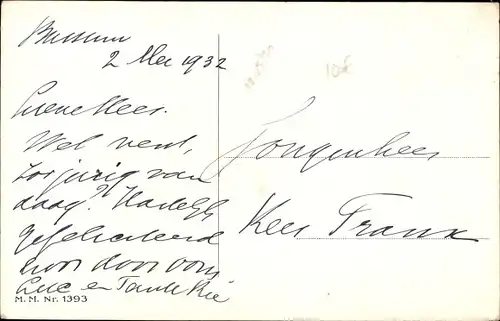 Bussum
2 Mei 1932
Lieve Kees.
Wel vent,
zoo jarig van
daag? Hartelijk
gefeliciteerd
hoor door oom
Luc en Tante Rie
M. M. Nr. 1393
Jongenheer
Kees Frank